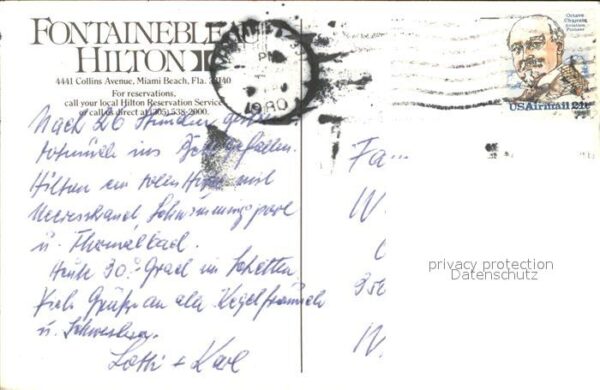 FONTAINEBLE
HILTON
4441 Collins Avenue, Miami Beach, Fla. 33140
For reservations,
call your local Hilton Reservation Service
or call us direct at (305) 538-2000.
PM
1980
Octave
Chanute
Aviation
Pioneer
USAirmail 21c
Nach 26 Stunden
totmüde ins Bett gefallen.
Hilton ein tolles Hotel mit
Meeresstrand Schwimmingpool
u. Thermalbad.
Heute 30° Grad im Schatten
Viele Grüße an alle Kegelfreunde
u. Schwestern.
Lotti + Karl
Fa...
W.
privacy protection
Datenschutz